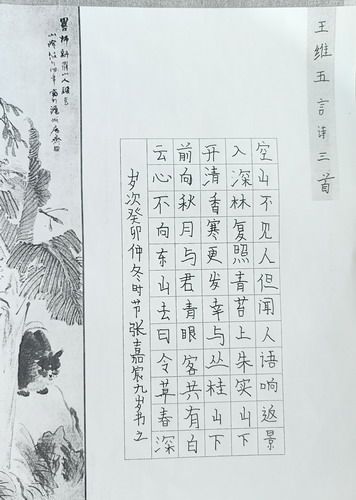 王维五言诗三首
空山不见人但闻人语响返景
入深林复照青苔上朱实山下
开清香寒更发幸与丛桂山下
前向秋月与君青眼客共有白
云心不向东山去日令草春深
岁次癸卯仲冬时节张嘉宸九岁书之